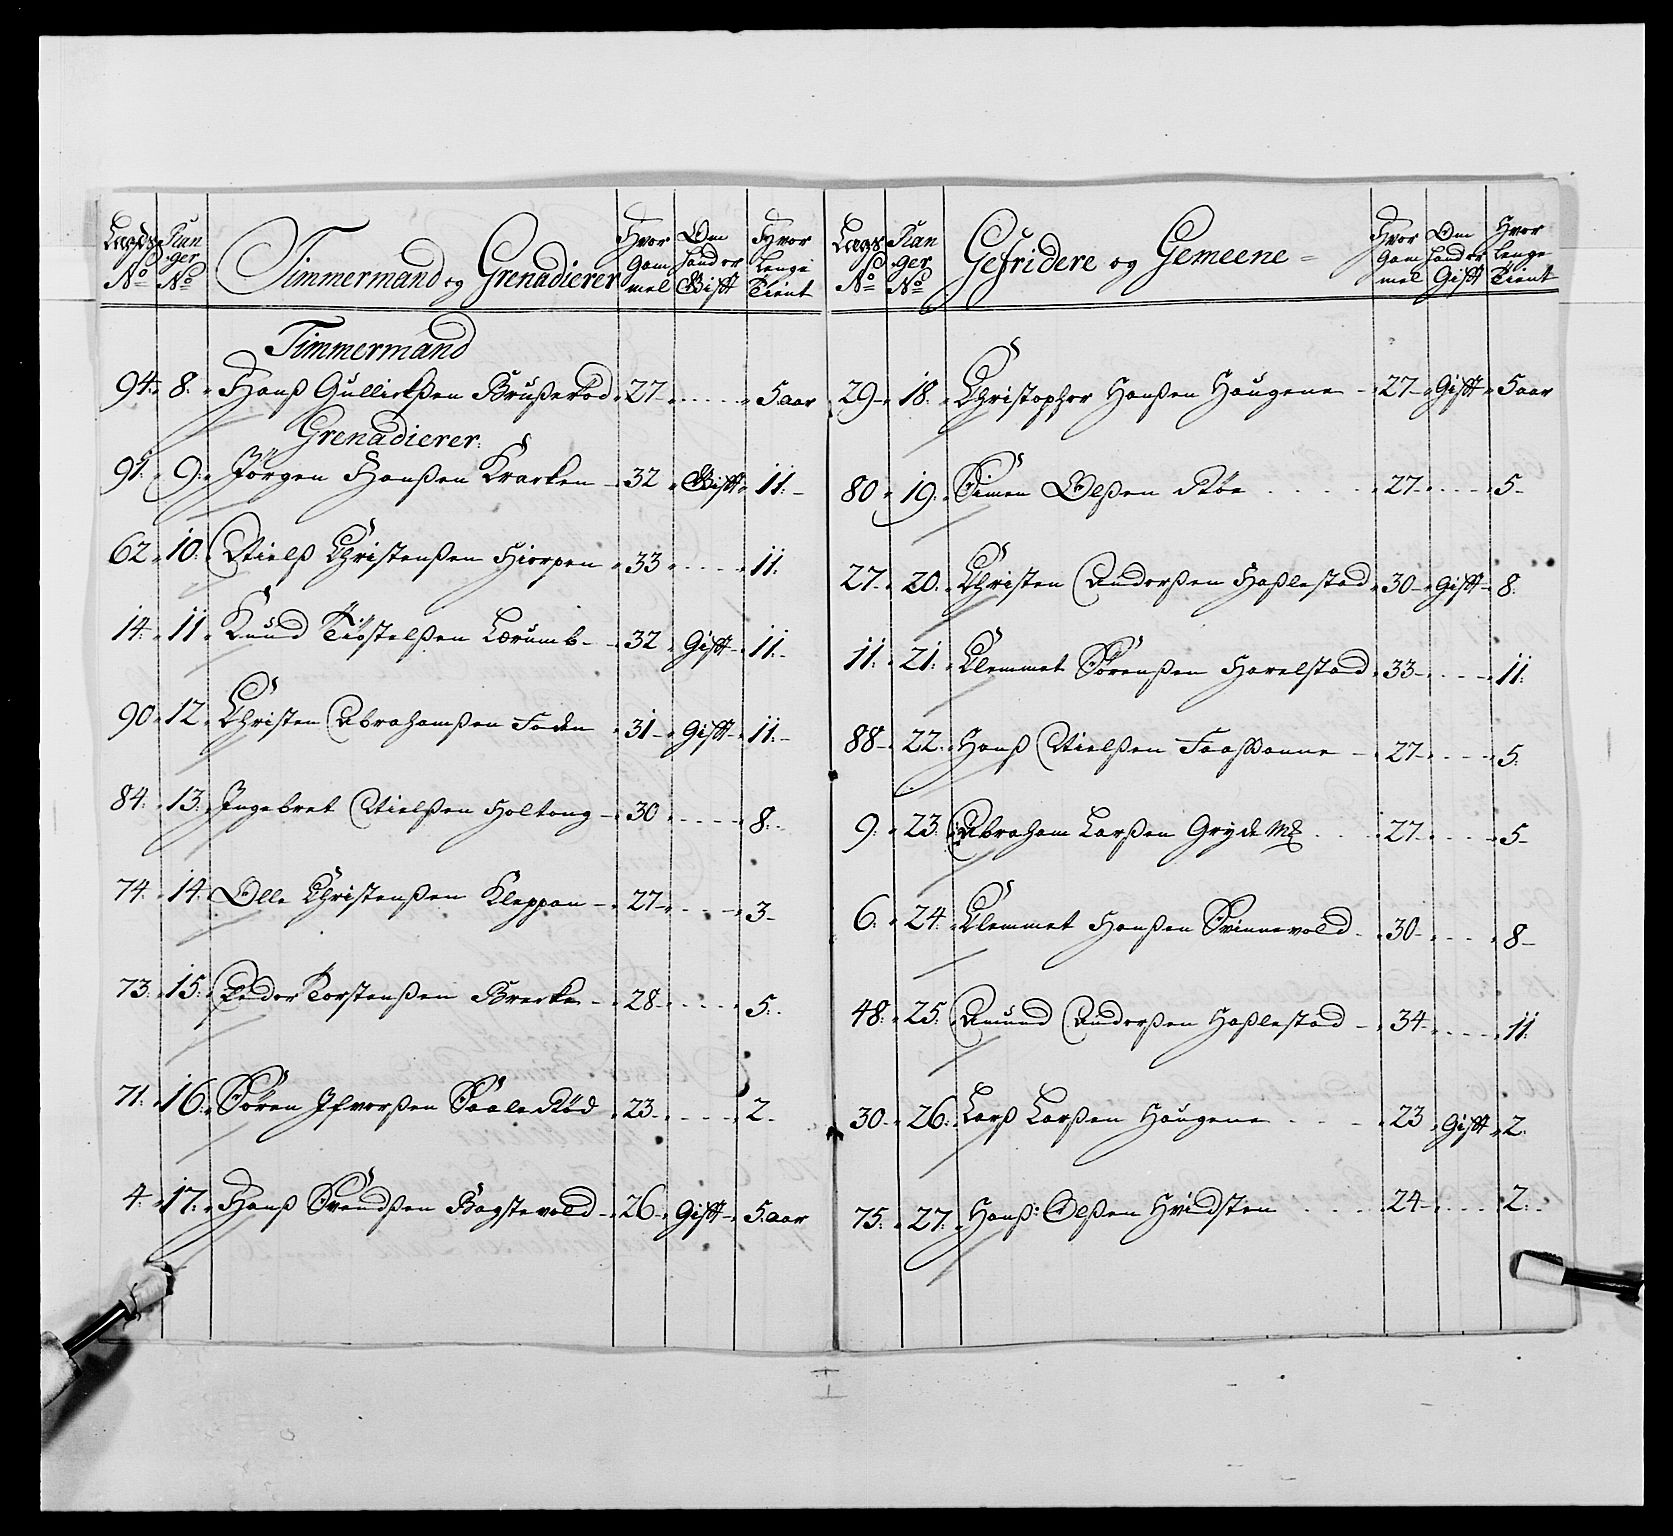 Lægds No | Ran ger No | Timmermand og Grenadierer | Hvor Gam mel | Om hand er Gifft | Hvor Lenge Tient
Timmermand
94. 8. Hanß Gullichßen Brußerød 27 - 5 aar
Grenadierer:
91. 9. Jörgen Hanßen Kracken 32 Gifft 11.
62. 10. Nielß Christenßen Hiorpen 33 - 11.
14. 11. Knud Kiøstelßen Lærumb 32 Gifft 11.
90. 12. Christen Abrahamßen Foden 31 Gifft 11.
84. 13. Ingebret Nielßen Holtong 30 - 8.
74. 14. Olle Christenßen Kleppan 27 - 3
73. 15. Peder Torstenßen Brecke 28 - 5.
71. 16. Sören Ifvorßen Saale Rød 23 - 2.
4. 17. Hanß Svendßen Bagstevold 26 Gifft 5. aar
Lægds No | Ran ger No | Gefridere og Gemeene | Hvor Gam mel | Om hand er Gifft | Hvor Lenge Tient
29. 18. Christopher Hanßen Haugene 27 Gifft 5 aar
80. 19. Simen Olßen Røe 27 - 5
27. 20. Christen Anderßen Haßlestad 30 Gifft 8.
11. 21. Clemmet Sörenßen Havelstad 33 - 11.
88. 22. Hanß Nielßen 27 - 5.
9. 23. Abraham Larßen Gryde 27 - 5
6. 24. Clemmet Hanßen Svinnevold 30 - 8
48. 25. Amund Anderßen Haßlestad 34 - 11.
30. 26. Larß Larßen Haugene 23 Gifft 2.
75. 27. Hanß Olßen Hvidsten 24 - 2.